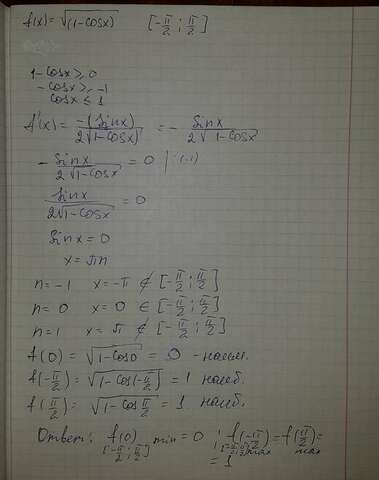 f(x) = √(1-cosx) [-π/2 ; π/2]
1-cosx ≥ 0
-cosx ≥ -1
cosx ≤ 1
f'(x) = -(sinx)/2√(1-cosx) = - sinx/2√(1-cosx)
- sinx/2√(1-cosx) = 0 | :(-1)
sinx/2√(1-cosx) = 0
sinx = 0
x = πn
n = -1 x = -π ∉ [-π/2 ; π/2]
n = 0 x = 0 ∈ [-π/2 ; π/2]
n = 1 x = π ∉ [-π/2 ; π/2]
f(0) = √(1-cos0) = 0 - наим.
f(-π/2) = √(1-cos(-π/2)) = 1 наиб.
f(π/2) = √(1-cos π/2) = 1 наиб.
Ответ: f(0) min = 0 ; f(-π/2) = f(π/2) =
[-π/2 ; π/2] [-π/2 ; π/2] max max
= 1